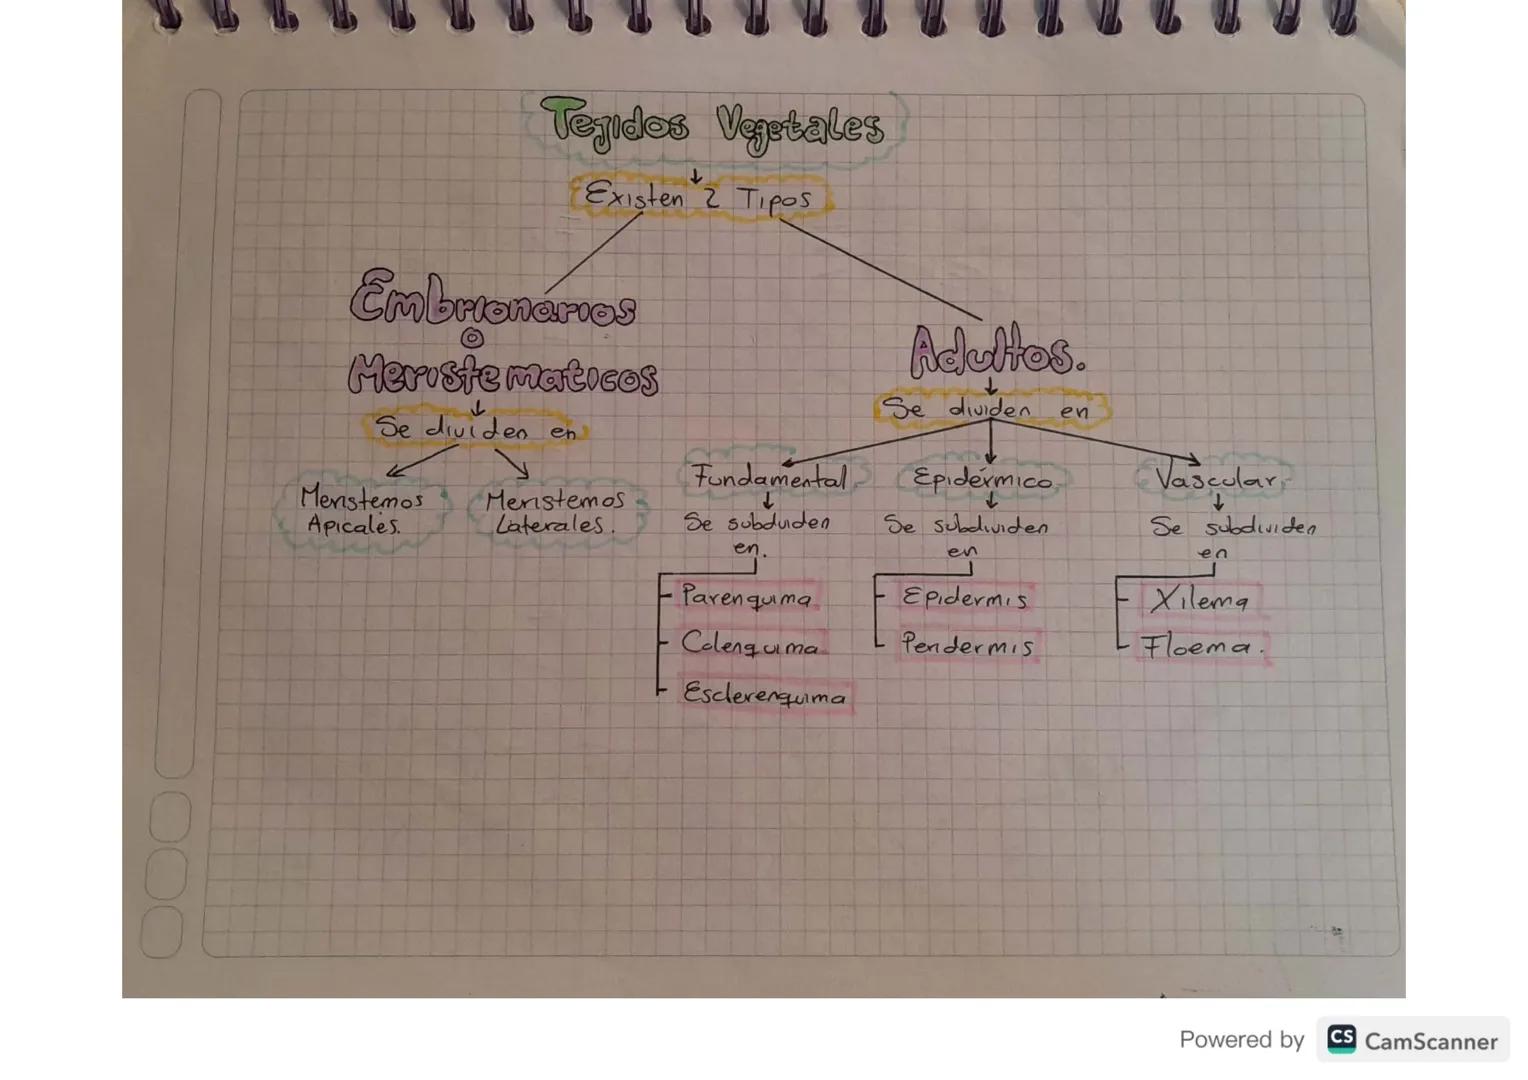 Tejidos Vegetales
Existen 2 Tipos
Embrionarios
o
Meristematicos
Se dividen en
Meristemos
Apicales.
Meristemos
Laterales.
Adultos.
Se dividen en
Fundamental
Se subduiden
en.
Parenquima
Colenquima
Esclerenquima
Epidérmico
Se subdividen
en
Epidermis
Peridermis
Vascular
Se subdividen
en
Xilema
Floema.
Powered by CS CamScanner